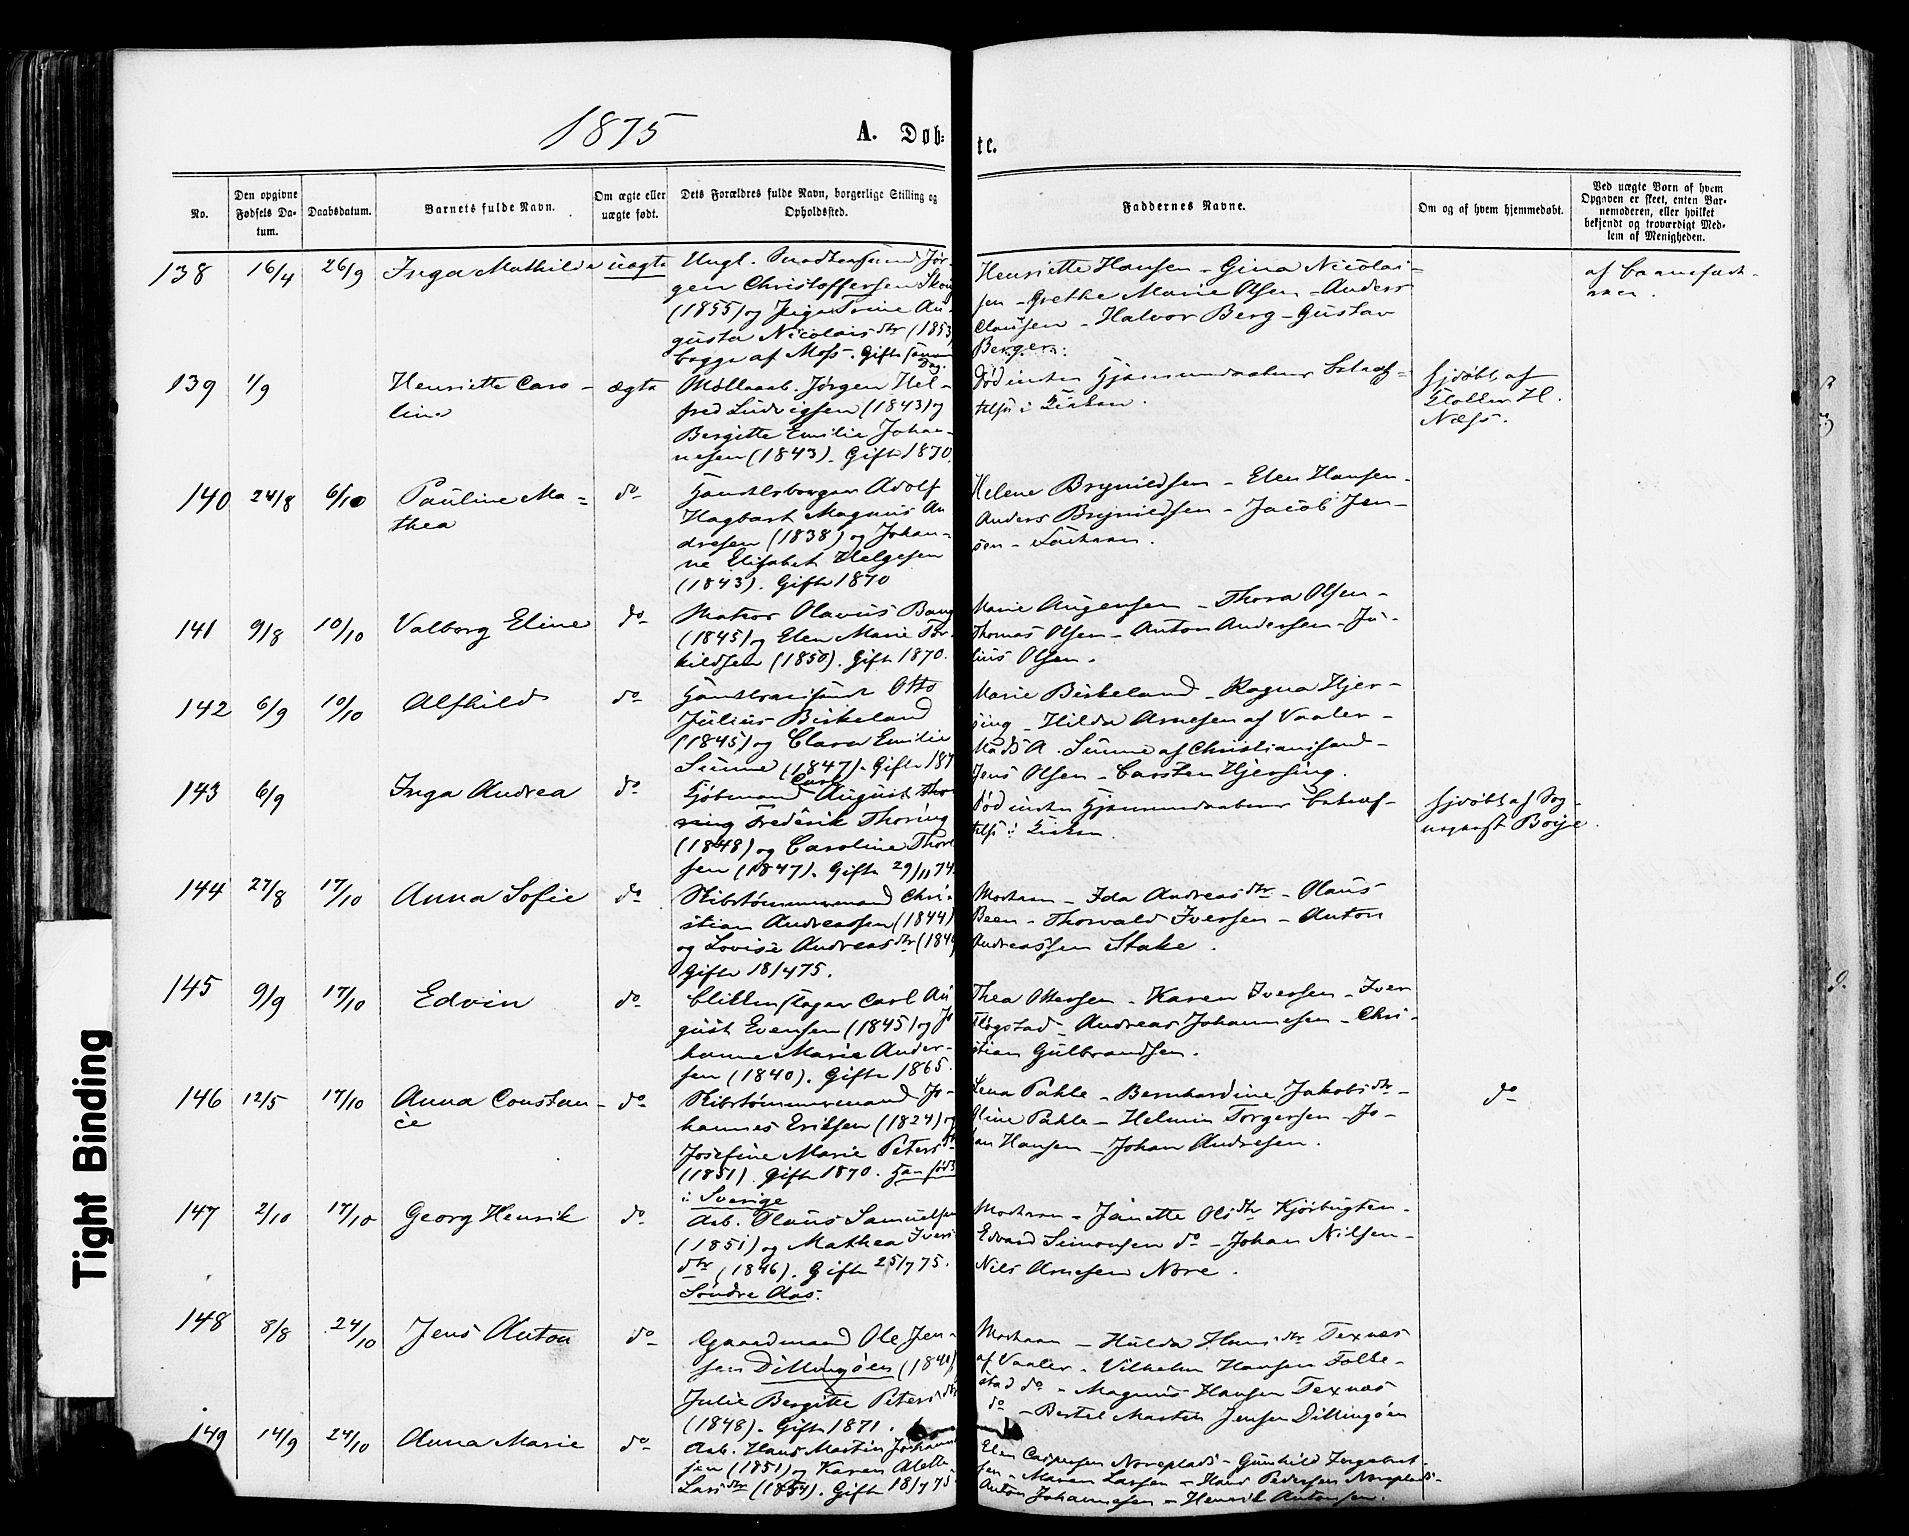 1875
A. Døb-
te.
No.
Den opgivne
Fødsels Da-
tum.
Daabsdatum.
Barnets fulde Navn.
Om ægte eller
uægte født.
Dets Forældres fulde Navn, borgerlige Stilling og
Opholdssted.
Faddernes Navne.
Om og af hvem hjemmedøbt.
Ved uægte Børn af hvem
Opgaven er skeet, enten Bar-
nemoderen, eller hvilket
bekjendt og troværdigt Med-
lem af Menigheden.
138 16/4 26/9 Inga Mathilde uægte
Ungk. Jør-
gen Christoffersen
(1855) og Trine Au-
gusta Nicolaisdtr (1853)
begge af Moss. Gifte samme
Dag.
Henriette Hansen - Gina Nicolai-
sen - Grethe Marie Olsen - Anders
Clausen - Halvor Berg - Gustav
Berger
af Barnefad-
eren.
139 1/9 Henriette Caro-
line
ægte
Møllearb. Jørgen Hel-
fred Ludvigsen (1843) og
Bergitte Emilie Johan-
nesen (1843). Gifte 1870.
Død inden Hjemmedaabens Bekræf-
telse i Kirken.
hjdøbt af
Klokker H.
Næss.
140 24/8 6/10 Pauline Ma-
thea
do
Handelsborger Adolf
Hagbart Magnus An
dresen (1838) og Johan-
ne Elisabet Helgesen
(1843). Gifte 1870
Helene Brynildsen - Elen Hansen -
Anders Brynildsen - Jacob Jen-
sen - Faderen.
141 9/8 10/10 Valborg Eline do
Matros Olavus Bang
(1845) og Elen Marie Tor-
kildsen (1850). Gifte 1870.
Marie Augensen - Thora Olsen -
Thomas Olsen - Anton Andersen - Ju-
lius Olsen.
142 6/9 10/10 Alfhild do
Otto
Julius Birkeland
(1845) og Clara Emilie
Sunne (1847). Gifte 187
Marie Birkeland - Ragna Hjer-
sing - Hilda Arnesen af Vaaler -
Mads A. Sunne af Christiansand -
Jens Olsen - Carsten Hjersing.
143 6/9 Inga Andrea do
Kjøbmand Carl August Tho
ring Frederik Thoring
(1848) og Caroline Thore
sen (1847). Gifte 29/11 74.
Død inden Hjemmedaabens Bekræf-
telse i Kirken.
hjdøbt af Sog-
neprest Boye.
144 27/8 17/10 Anna Sofie do
Skibstømmermand Chri-
stian Andreassen (1844)
og Lovise Andreasdtr (184
Gifte 18/4 75.
Moderen - Ida Andreasdtr - Olaus
Been - Thorvald Iversen - Anton
Andreassen Stake.
145 9/9 17/10 Edvin do
Blikkenslager Carl Au
gust Evensen (1845) og Jo
hanne Marie Ander-
sen (1840). Gifte 1865.
Thea Ottersen - Karen Iversen - Iver
Fløgstad - Andreas Johannesen - Chri-
stian Gulbrandsen.
146 12/5 17/10 Anna Constan-
ce
do
Skibstømmermand Jo-
hannes Eriksen (1824) og
Josefine Marie Petersdtr
(1851). Gifte 1870. Han født
i Sverige
Lena Pahle - Bernhardine Jakobsdtr -
Oline Pahle - Helmin Torgersen - Jo-
han Hansen - Johan Andresen.
do
147 2/10 17/10 Georg Henrik do
Arb. Olaus Samuelsen
(1851) og Mathea Ivers
dtr (1846). Gifte 25/7 75.
Søndre Aas.
Moderen - Janette Olsdtr Kjørbugten -
Edvard Simonsen do - Johan Nilsen -
Nils Arnesen Nore.
148 8/8 24/10 Jens Anton do
Gaardmand Ole Jen-
sen Dillingøen (1840)
Julie Bergitte Petersdtr
(1848). Gifte 1871.
Moderen - Hulda Hansdtr Texnæs
af Vaaler - Vilhelm Hansen Folke-
stad do - Magnus Hansen Texnæs
do - Bertel Martin Jensen Dillingøen
149 14/9 24/10 Anna Marie do
Arb. Hans Martin Johanne
sen (1851) og Karen Alette
Larsdtr (1854). Gifte 18/7 75.
Elen Caspersen Noreplads - Gunhild Ingebret-
sen - Maren Larsen - Hans Pedersen Noreplads -
Anton Johannesen - Henrik Antonsen.
Tight Binding